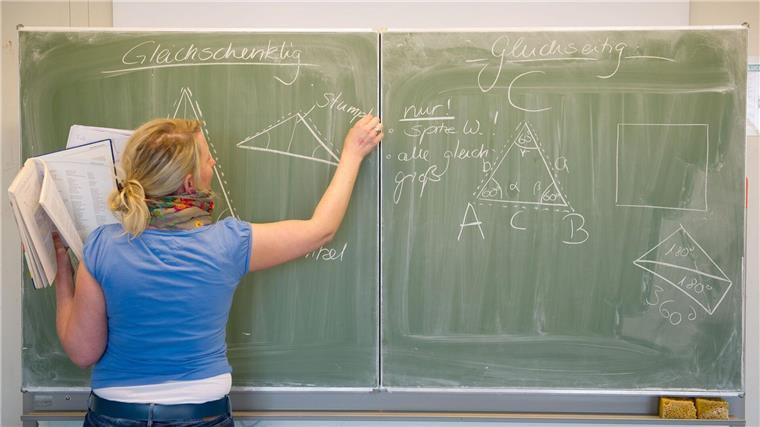 Gleichschenklig
Stumpf
Gleichseitig
nur!
• spitze W.!
• alle gleich
groß
C
60°
γ
b
a
60°
α
β
60°
A
C
B
180°
180°
360°